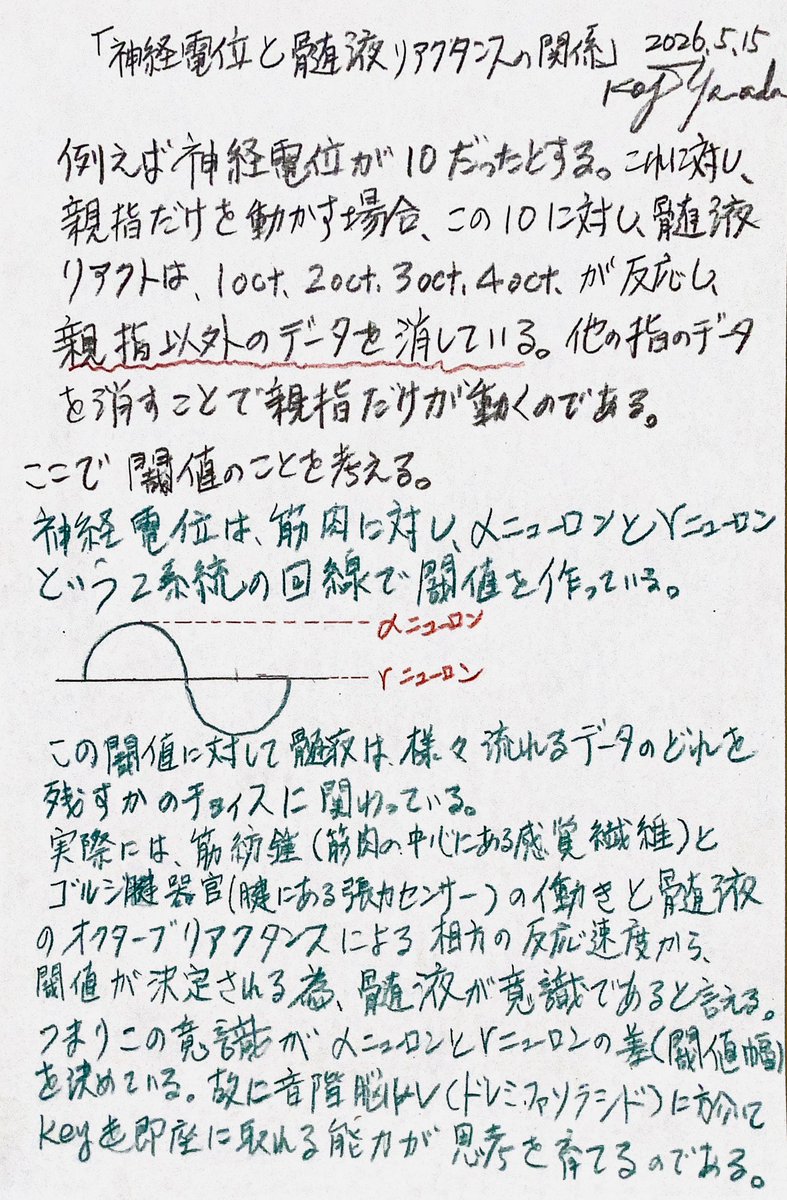 「神経電位と髄液リアクタンスの関係」 2026.5.15
Key Yamada
例えば神経電位が10だったとする。これに対し、
親指だけを動かす場合、この10に対し、髄液
リアクトは、1oct、2oct、3oct、4oct、が反応し、
親指以外のデータを消している。他の指のデータ
を消すことで親指だけが動くのである。
ここで閾値のことを考える。
神経電位は、筋肉に対し、αニューロンとγニューロン
という2系統の回線で閾値を作っている。
αニューロン
γニューロン
この閾値に対して髄液は様々流れるデータのどれを
残すかのチョイスに関わっている。
実際には、筋紡錘(筋肉の中心にある感覚繊維)と
ゴルジ腱器官(腱にある張力センサー)の働きと髄液
のオクターブリアクタンスによる相方の反応速度から、
閾値が決定される為、髄液が意識であると言える。
つまりこの意識がαニューロンとγニューロンの差(閾値幅)
を決めている。故に音階脳トレ(ドレミファソラシド)に於いて
Keyを即座に取れる能力が思考を育てるのである。